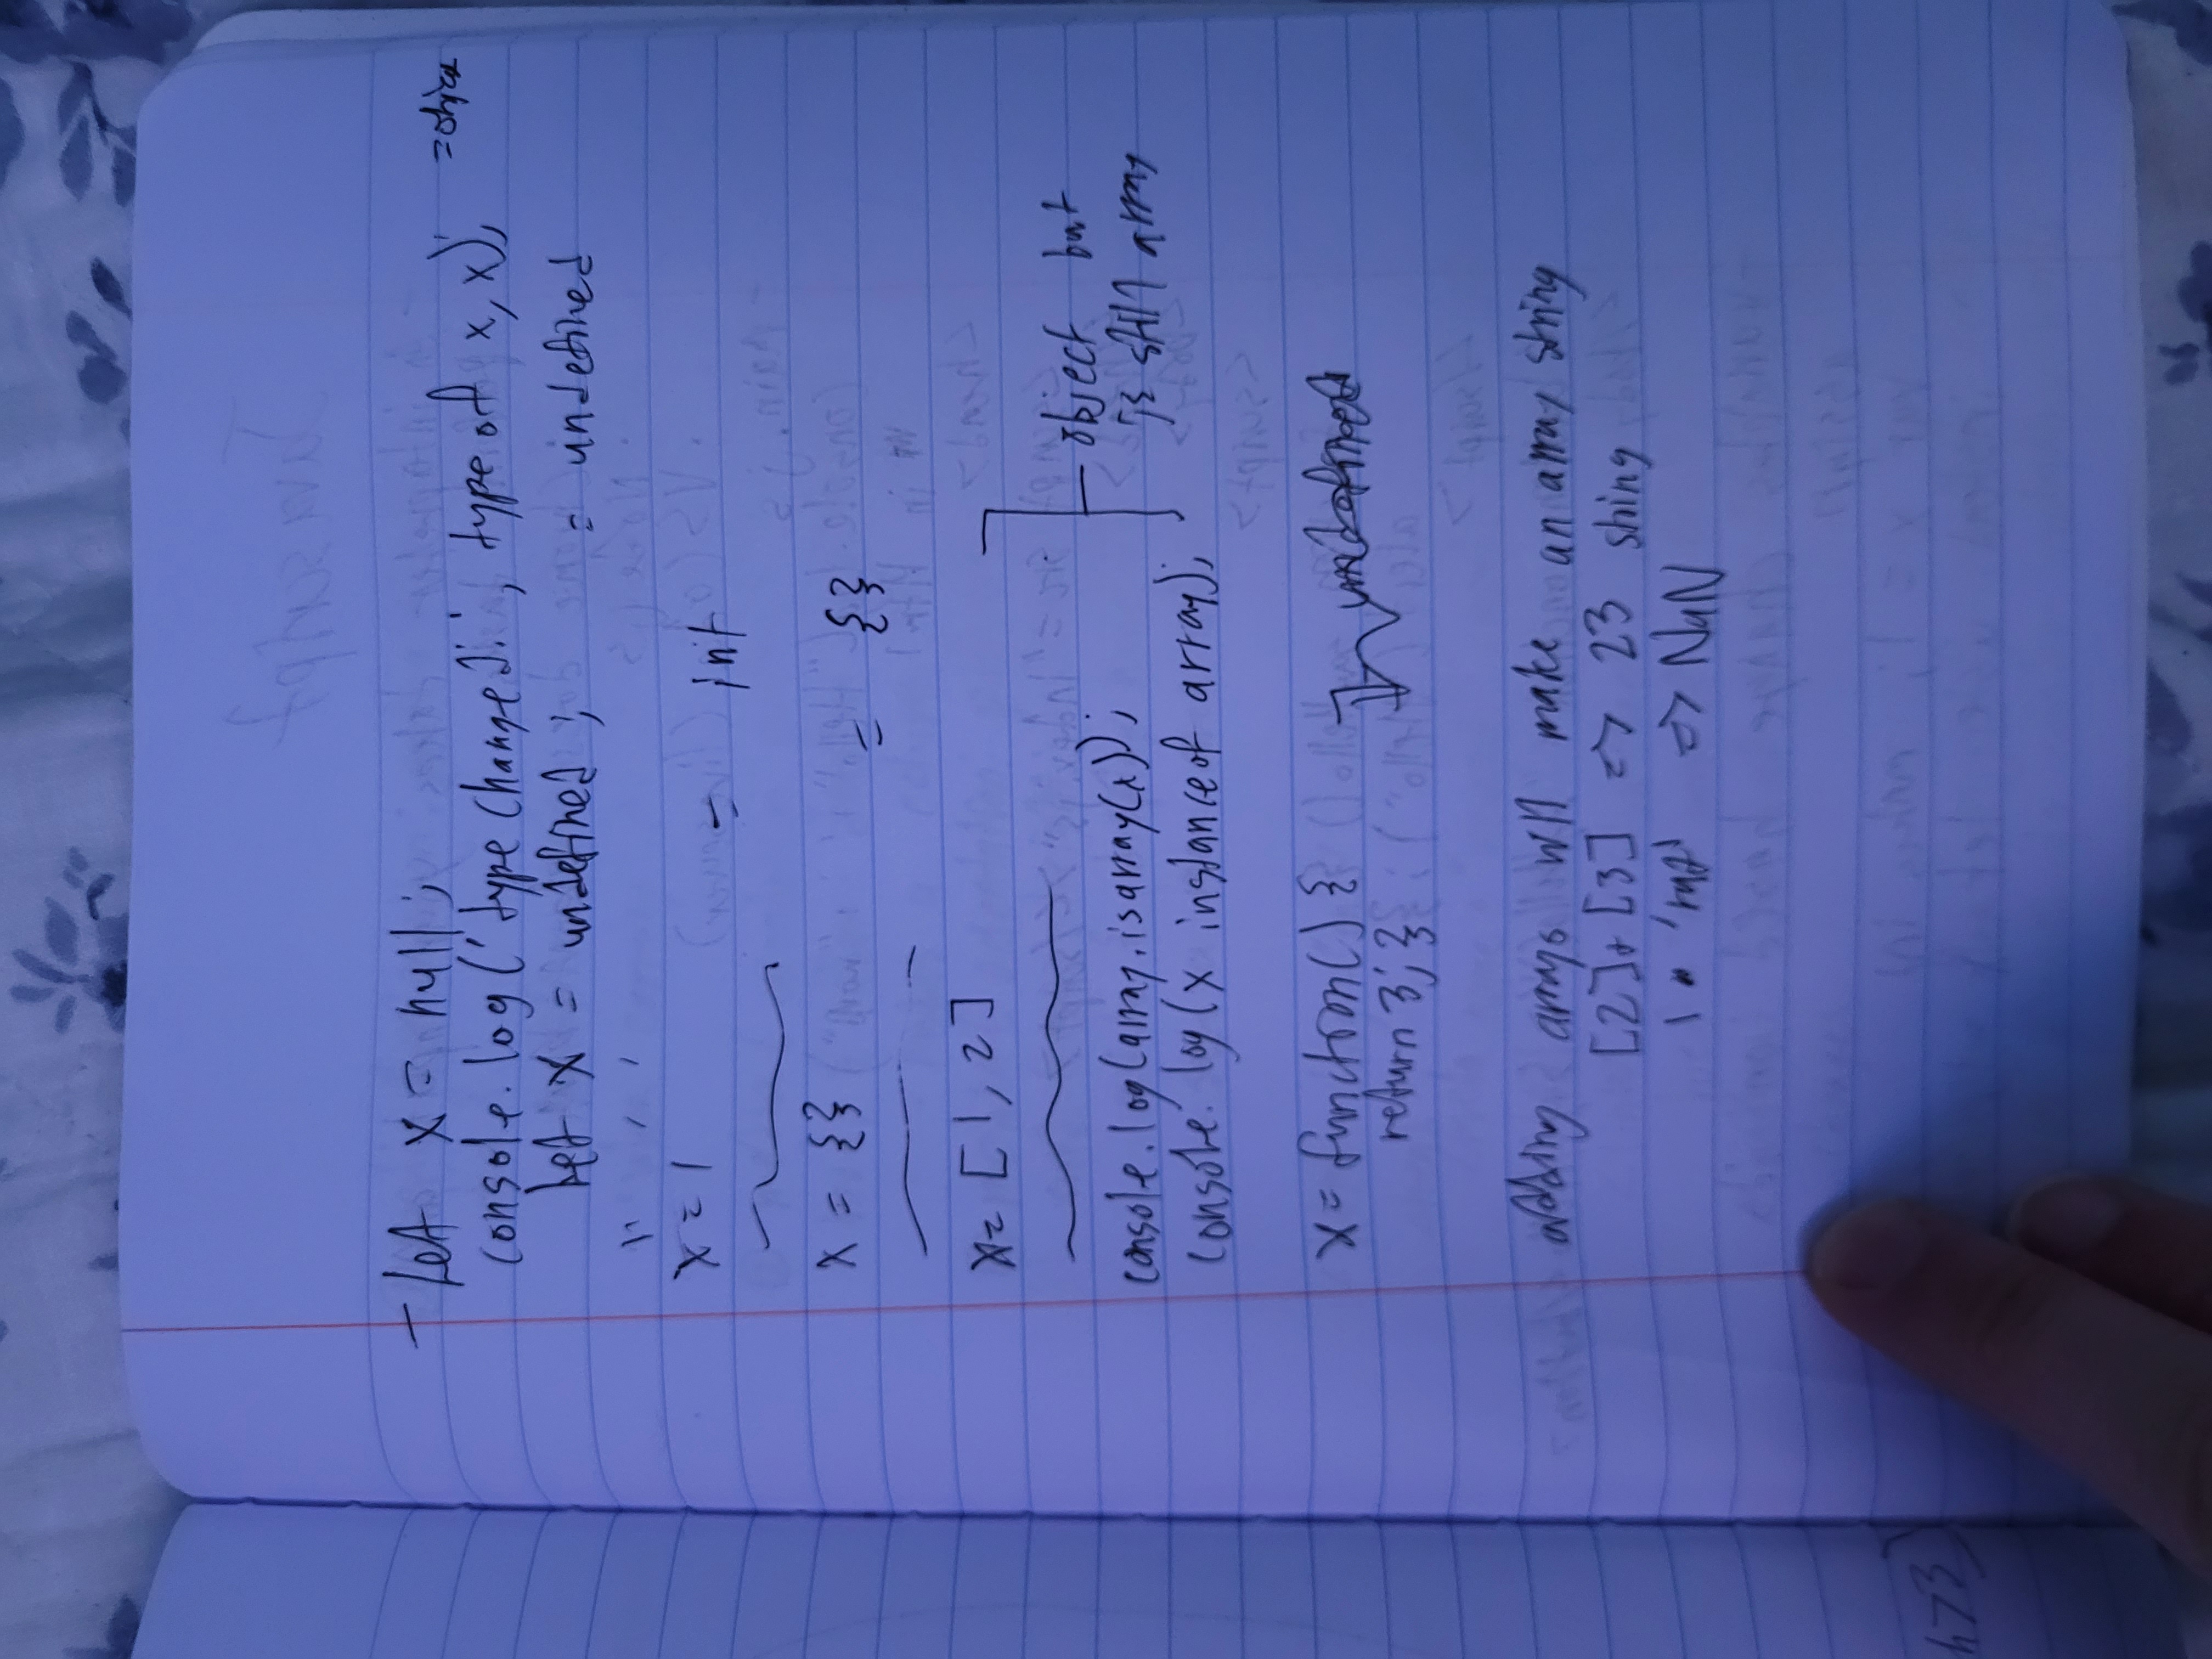 - Let x = null;
console.log('type changed:', type of x, x); = object
Let x = undefined; = undefined
" ' '
x = 1 = int
x = {} = {}
x= [1, 2]
console.log(array.isarray(x));
console.log(x instanceof array);
object but
is still array
x = function() {
return 3; }
undefined
adding arrays will make an array string
[2]+[3] => 23 string
1 => NaN
h>3)